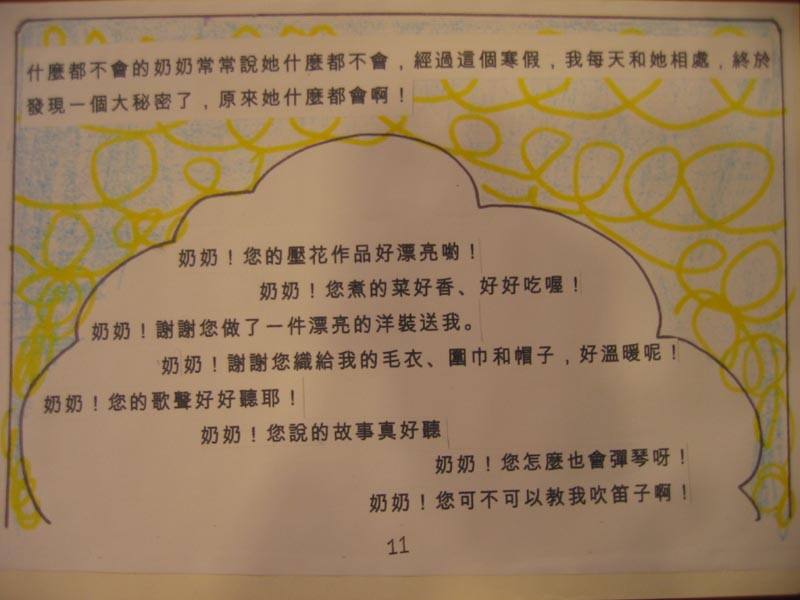 什麼都不會的奶奶常常說她什麼都不會，經過這個寒假，我每天和她相處，終於
發現一個大秘密了，原來她什麼都會啊！
奶奶！您的壓花作品好漂亮喲！
奶奶！您煮的菜好香、好好吃喔！
奶奶！謝謝您做了一件漂亮的洋裝送我。
奶奶！謝謝您織給我的毛衣、圍巾和帽子，好溫暖呢！
奶奶！您的歌聲好好聽耶！
奶奶！您說的故事真好聽
奶奶！您怎麼也會彈琴呀！
奶奶！您可不可以教我吹笛子啊！
11